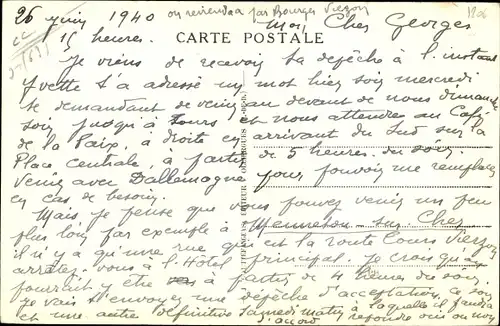 26 juin 1940 on reviendra par Bourges Vierzon
Mon Cher Georges
15 heures.
CARTE POSTALE
Je viens de recevoir ta depêche à l'instant
Yvette t'a adressé un mot hier soir mercredi
te demandant de venir au devant de nous dimanche
soir jusqu'à Tours et nous attendre au Café
de la Paix, à droite en arrivant du Sud sur la
Place centrale, à partir de 5 heures du soir
Venir avec Dallemagne pour pouvoir me remplacer
en cas de besoin.
Mais je pense que vous pouvez venir un peu
plus loin par exemple à Mennetou sur Cher
il n'y a qu'une rue qui est la route Tours Vierzon
arrêtez-vous à l'Hôtel principal. Je crois qu'on
pourrait y être à partir de 4 heures du soir.
Je vais t'envoyer une depêche d'acceptation ce soir
et une autre définitive Samedi matin à laquelle il faudra
répondre oui ou non